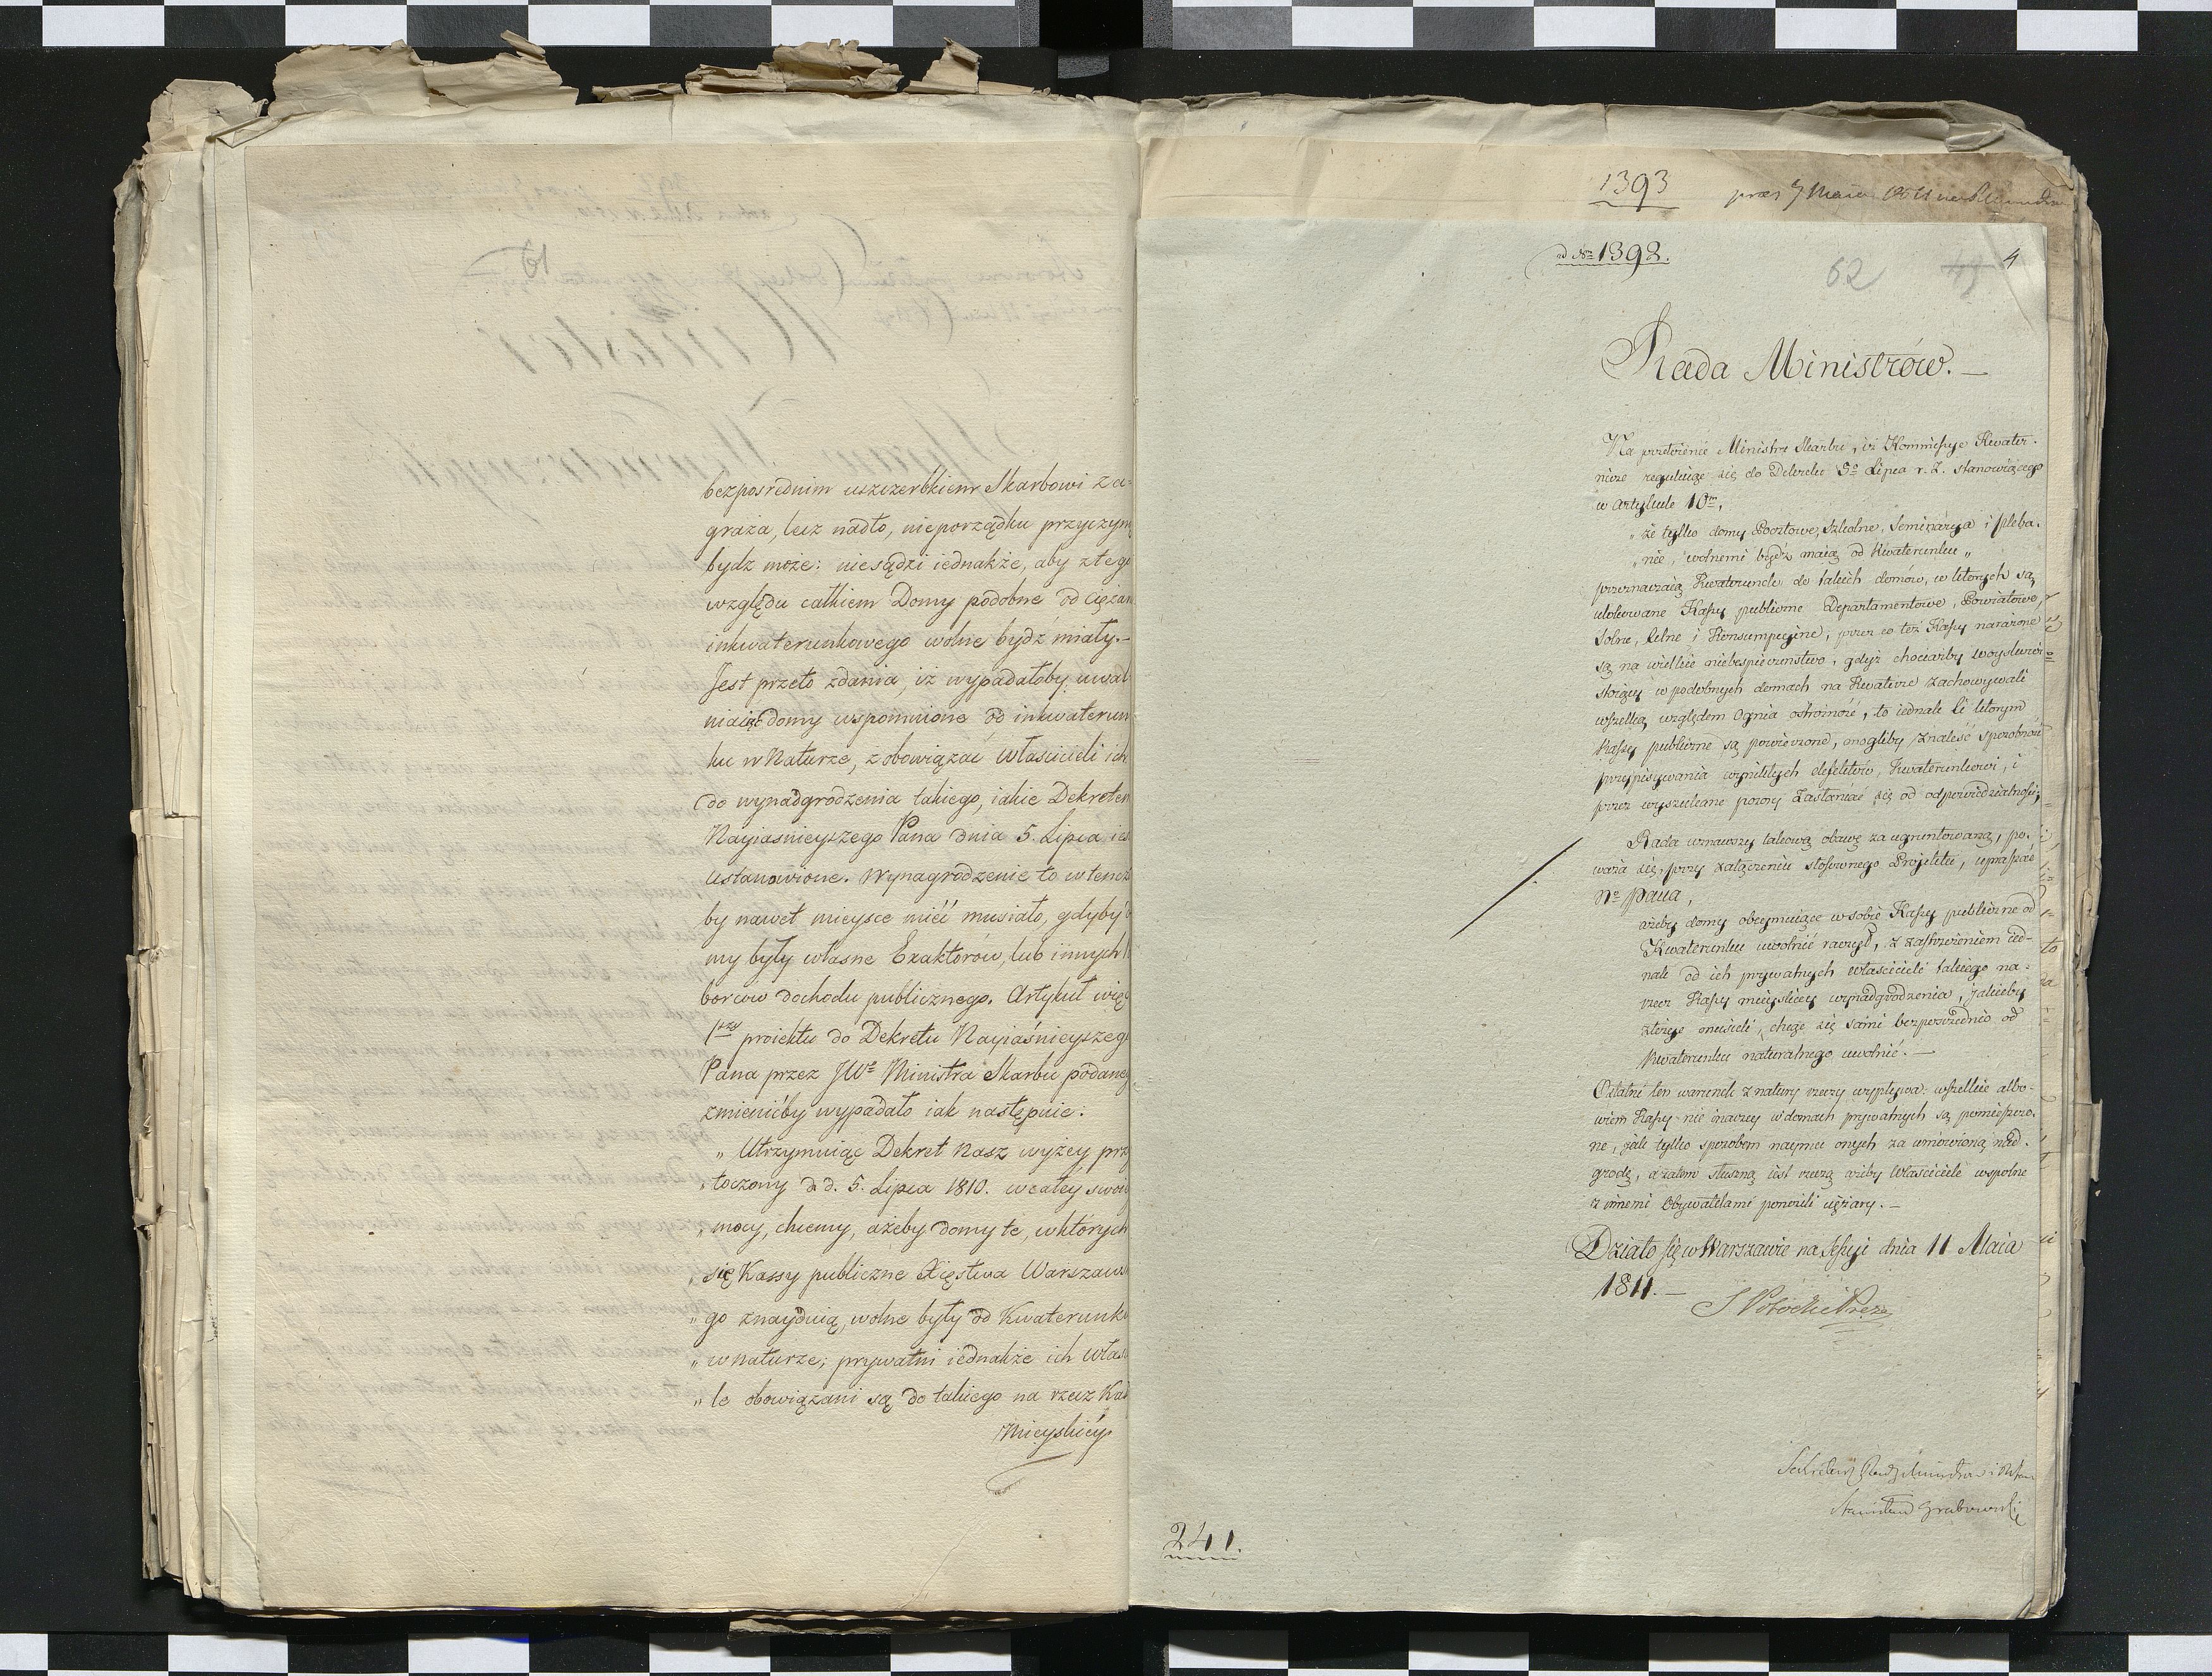 bezpośrednim uszczerbkiem Skarbowi za-
graża, lecz nadto, nieporządku przyczyn
bydz może: niesądzi iednakże, aby z teg
względu całkiem Domy podobne od ciężar
inkwaterunkowego wolne bydź miały.-
Jest przeto zdania, iż wypadałoby uwal
niaiąc domy wspomnione od inkwaterun
ku w Naturze, zobowiązać Właścicieli ich
do wynadgrodzenia takiego, iakie Dekretem
Nayiasnieyszego Pana dnia 5. Lipca ies
ustanowione. Wynagrodzenie to wtencz
by nawet mieysce mieć musiało, gdyby
my były własne Exaktorów, lub innych
borców dochodu publicznego. Artykuł więc
1szy proiektu do Dekretu Nayiaśnieyszeg
Pana przez JWo Ministra Skarbu podaneg
zmienićby wypadało iak następuie:
„ Utrzymuiąc Dekret Nasz wyżey prz
„ toczony d. d. 5. Lipca 1810. wcałey swoi
„ mocy, chcemy, ażeby domy te, w których
„ się Kassy publiczne Xięstwa Warszaws
„ go znayduią, wolne były od Kwaterunku
„ w naturze; prywatni iednakże ich Właś
„ le obowiązani są do takiego na rzecz Kas
Mieyskiéy
61
1393
praes 7 Maia
ad Nro 1393.
62
4
Rada Ministrów.—
Na przełożenie Ministra Skarbu, iż Kommissye Kwater-
nicze reguluiąc się do Dekretu 5o Lipca r. z. stanowiącego
w Artykule 10m,
„ że tylko domy Pocztowe, Szkolne, Seminarya i Pleba-
„ nie, wolnemi bydź maią od Kwaterunku „
przeznaczaią Kwaterunek do takich domów, w których są
ulokowane Kassy publiczne Departamentowe, Powiatowe,
Solne, Celne i Konsumpcyjne, przez co też Kassy narażone
są na wielkie niebezpieczeństwo, gdyż chociażby woyskowi
stoiący w podobnych domach na Kwaterze zachowywali
wszelką względem Ognia ostrożność, to iednak Ci którym
Kassy publiczne są powierzone, mogliby znaleść sposobność
przypisywania wynikłych defektów, Kwaterunkowi, i
przez wyszukane pozory zasłaniać się od odpowiedzialności,
Rada uznawszy takową obawę za ugruntowaną, po-
waża się, przy załączeniu stosownego Projektu, upraszać
No Pana,
ażeby domy obeymuiące w sobie Kassy publiczne od
Kwaterunku uwolnić raczył, z zastrzeżeniem ied-
nak od ich prywatnych właścicieli takiego na-
rzecz Kassy mieyskiey wynadgrodzenia, jakieby
złożyć musieli, chcąc się sami bezpośrednio od
Kwaterunku naturalnego uwolnić.—
Ostatni ten warunek z natury rzeczy wypływa: wszelkie albo-
wiem Kassy nie inaczey w domach prywatnych są pomieszczo-
ne, jak tylko sposobem naymu onych za umówioną nad-
grodę, a zatem słuszną iest rzeczą ażeby Właściciele wspolne
z innemi Obywatelami ponosili ciężary.—
Działo się w Warszawie na Sessyi dnia 11 Maia
1811.—
S Potocki Prezes
Sekretarz Rady Ministrów i Stanu
Stanisław Grabowski
241.